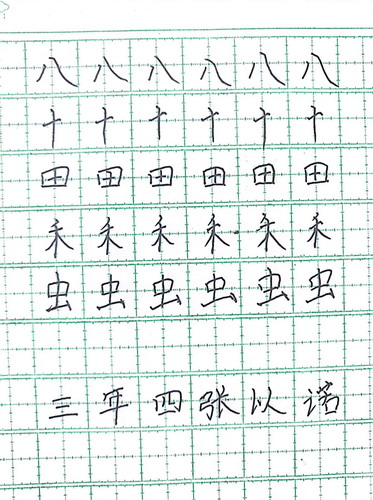 八八八八八八
十十十十十十
田田田田田田
禾禾禾禾禾禾
虫虫虫虫虫虫
三年四张以诺